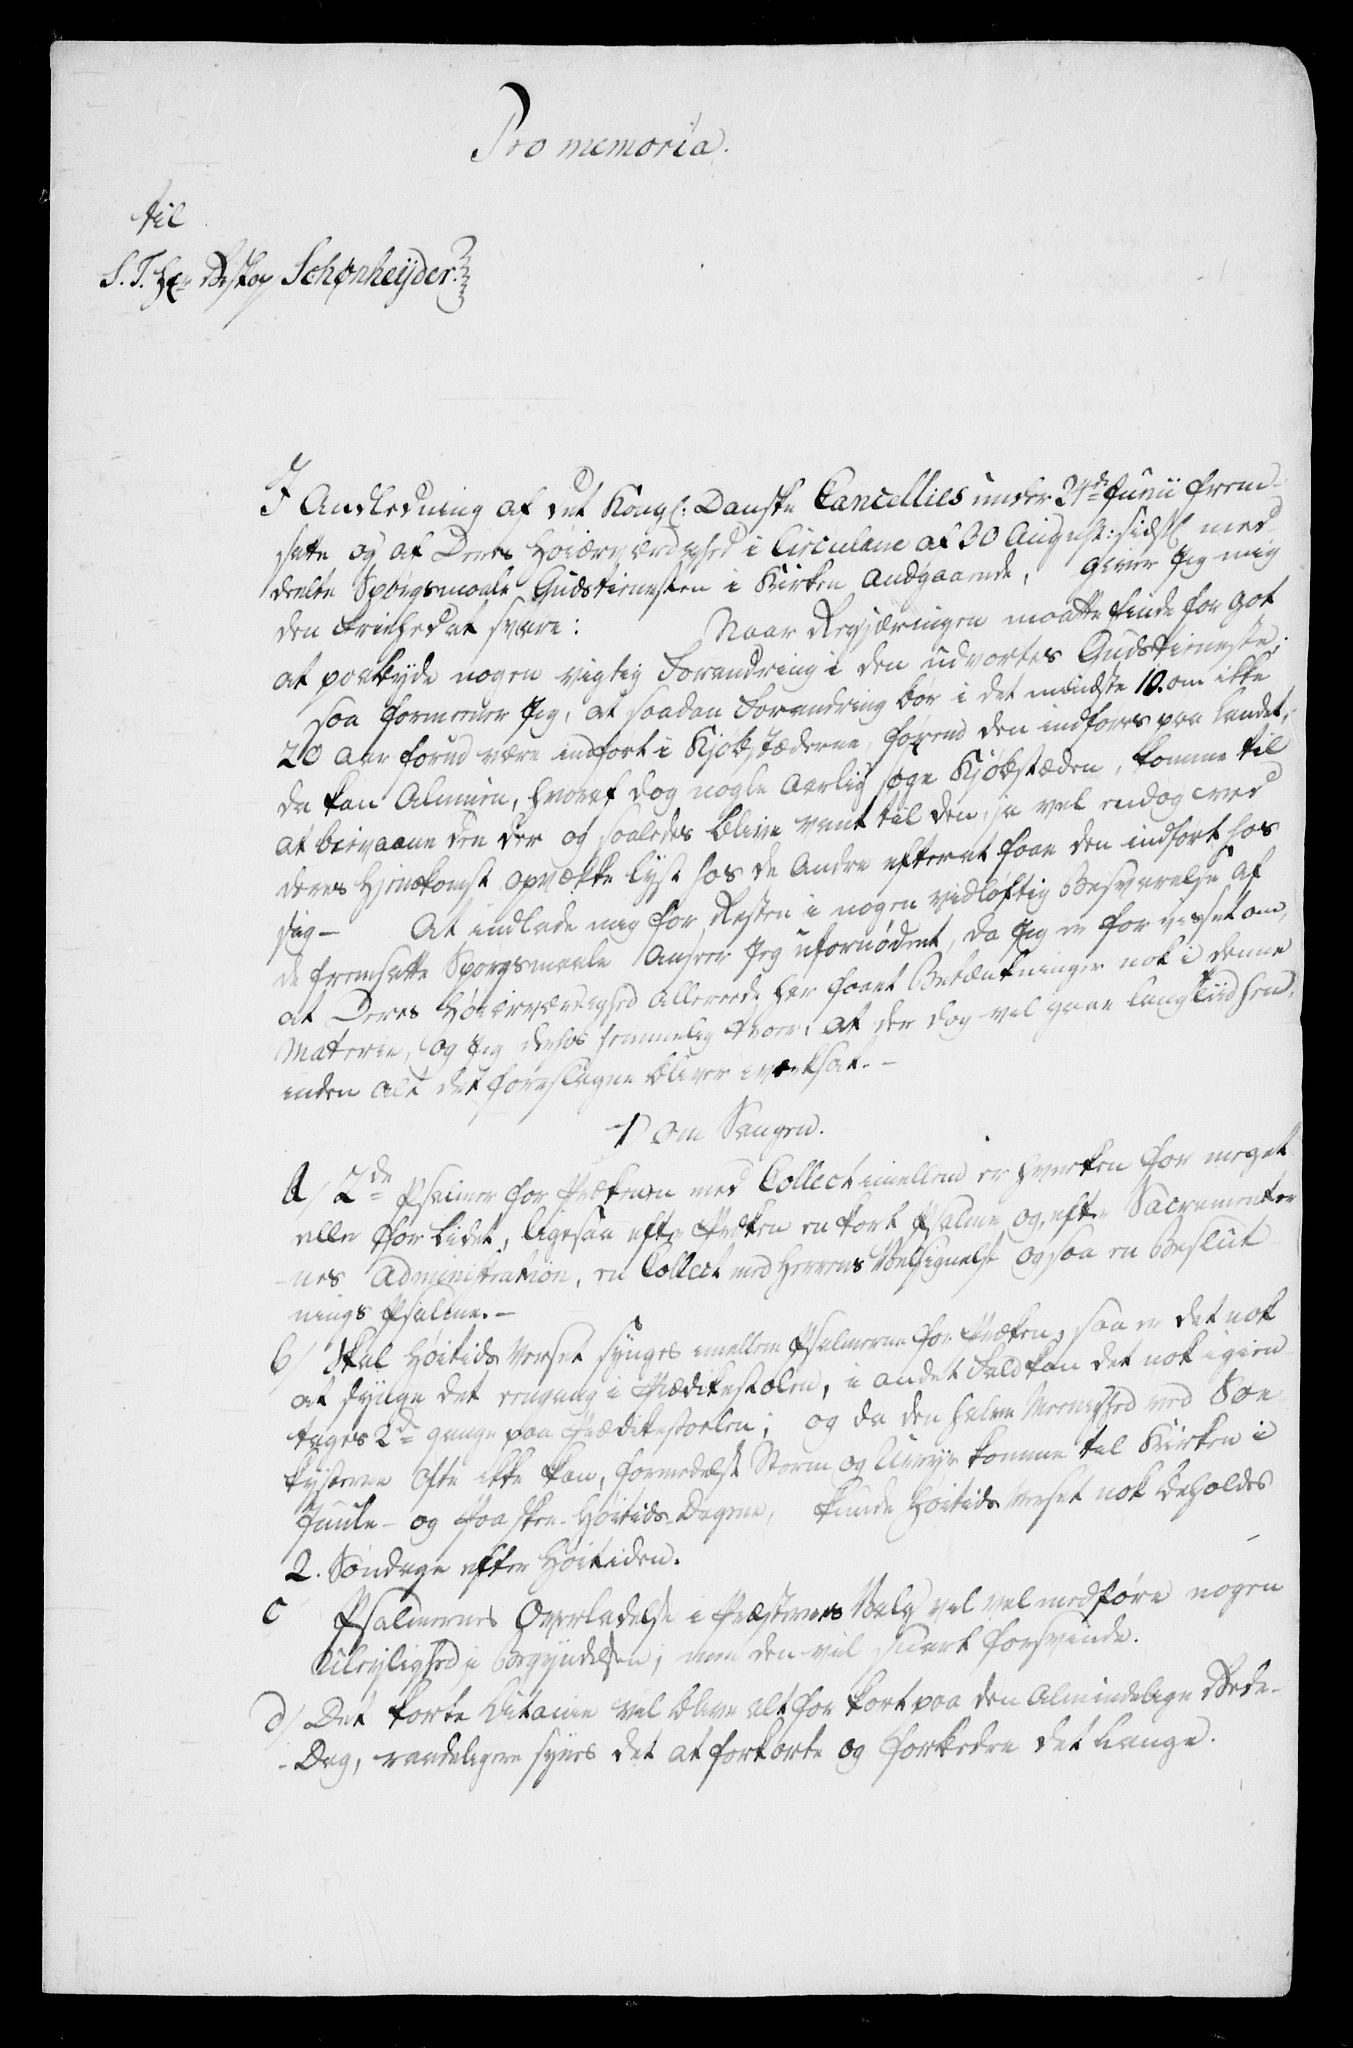 Pro memoria.
til
S. T. Hr. Biskop Schønheyder.
I Andledning af det Kongl: Danske Cancellies under 24de Junii frem-
satte og af Deres Høiærværdighed i Circulaire af 30 August: sidstl. med
deelte Spørgsmaale Gudstienesten i Kirken Andgaaende, giver Jeg mig
den Friehed at svare: Naar Regjæringen maatte finde for got
at paabyde nogen vigtig Forandring i den udvortes Gudstieneste;
saa formeener Jeg, at saadan Forandring bør i det mindste 10. om ikke
20 Aar forud være indført i Kjøbstæderne, førend den indføres paa Landet;
da kan Almuen, hvoraf dog nogle Aarlig søge Kjøbstæden, komme til
at bievaane den der og saaledes blive vant til den, ja vel endog ved
deres Hjemkomst opvække Lyst hos de Andre efter at faae den indført hos
sig - At indlade mig for Resten i nogen vidløftig Besvarelse af
de fremsatte Spørgsmaale Anseer Jeg ufornødent, da Jeg er forvisset om,
at Deres Høiærværdighed Allereede har faaet Betænkninger nok i denne
Materie, og Jeg derhos hemmelig troer: at der dog vil gaae lang tiid hen,
inden alt det foreslagne bliver iværksat. -
1 om Sangen.
a/ 2de Psalmer for Præken med Collect imellem er hverken for meget
elle for Lidet, ligesaa efte Præken en kort Psalme og efte Sacramenter
nes Administration, en Collect med Herrens Velsignelse og saa en Beslut
nings Psalme. -
b/ Skal Høitids Verset synges imellem Psalmerne for Præken, saa er det nok
at synge det eengang i Prædikestolen, i andet Fald kan det nok igien
tages 2de gange paa Prædikestoelen; og da den halve Meenighed ved Søe
kysterne Ofte ikke kan, formedelst Storm og Uveyr komme til Kirken i
Juule- og Paaske-Høitids-Dagene, kunde Høitids Verset nok beholdes
2. Søndage efter Høitiden.
c Psalmernes Overladelse i Præsternes Valg vil vel medføre nogen
Uleylighed i Begyndelsen; men den vil snart forsvinde.
d/ Det korte Litanie vil blive alt for kort paa den Almindelige Bede-
- Dag, raadeligere synes det at forkorte og forbedre det Lange.